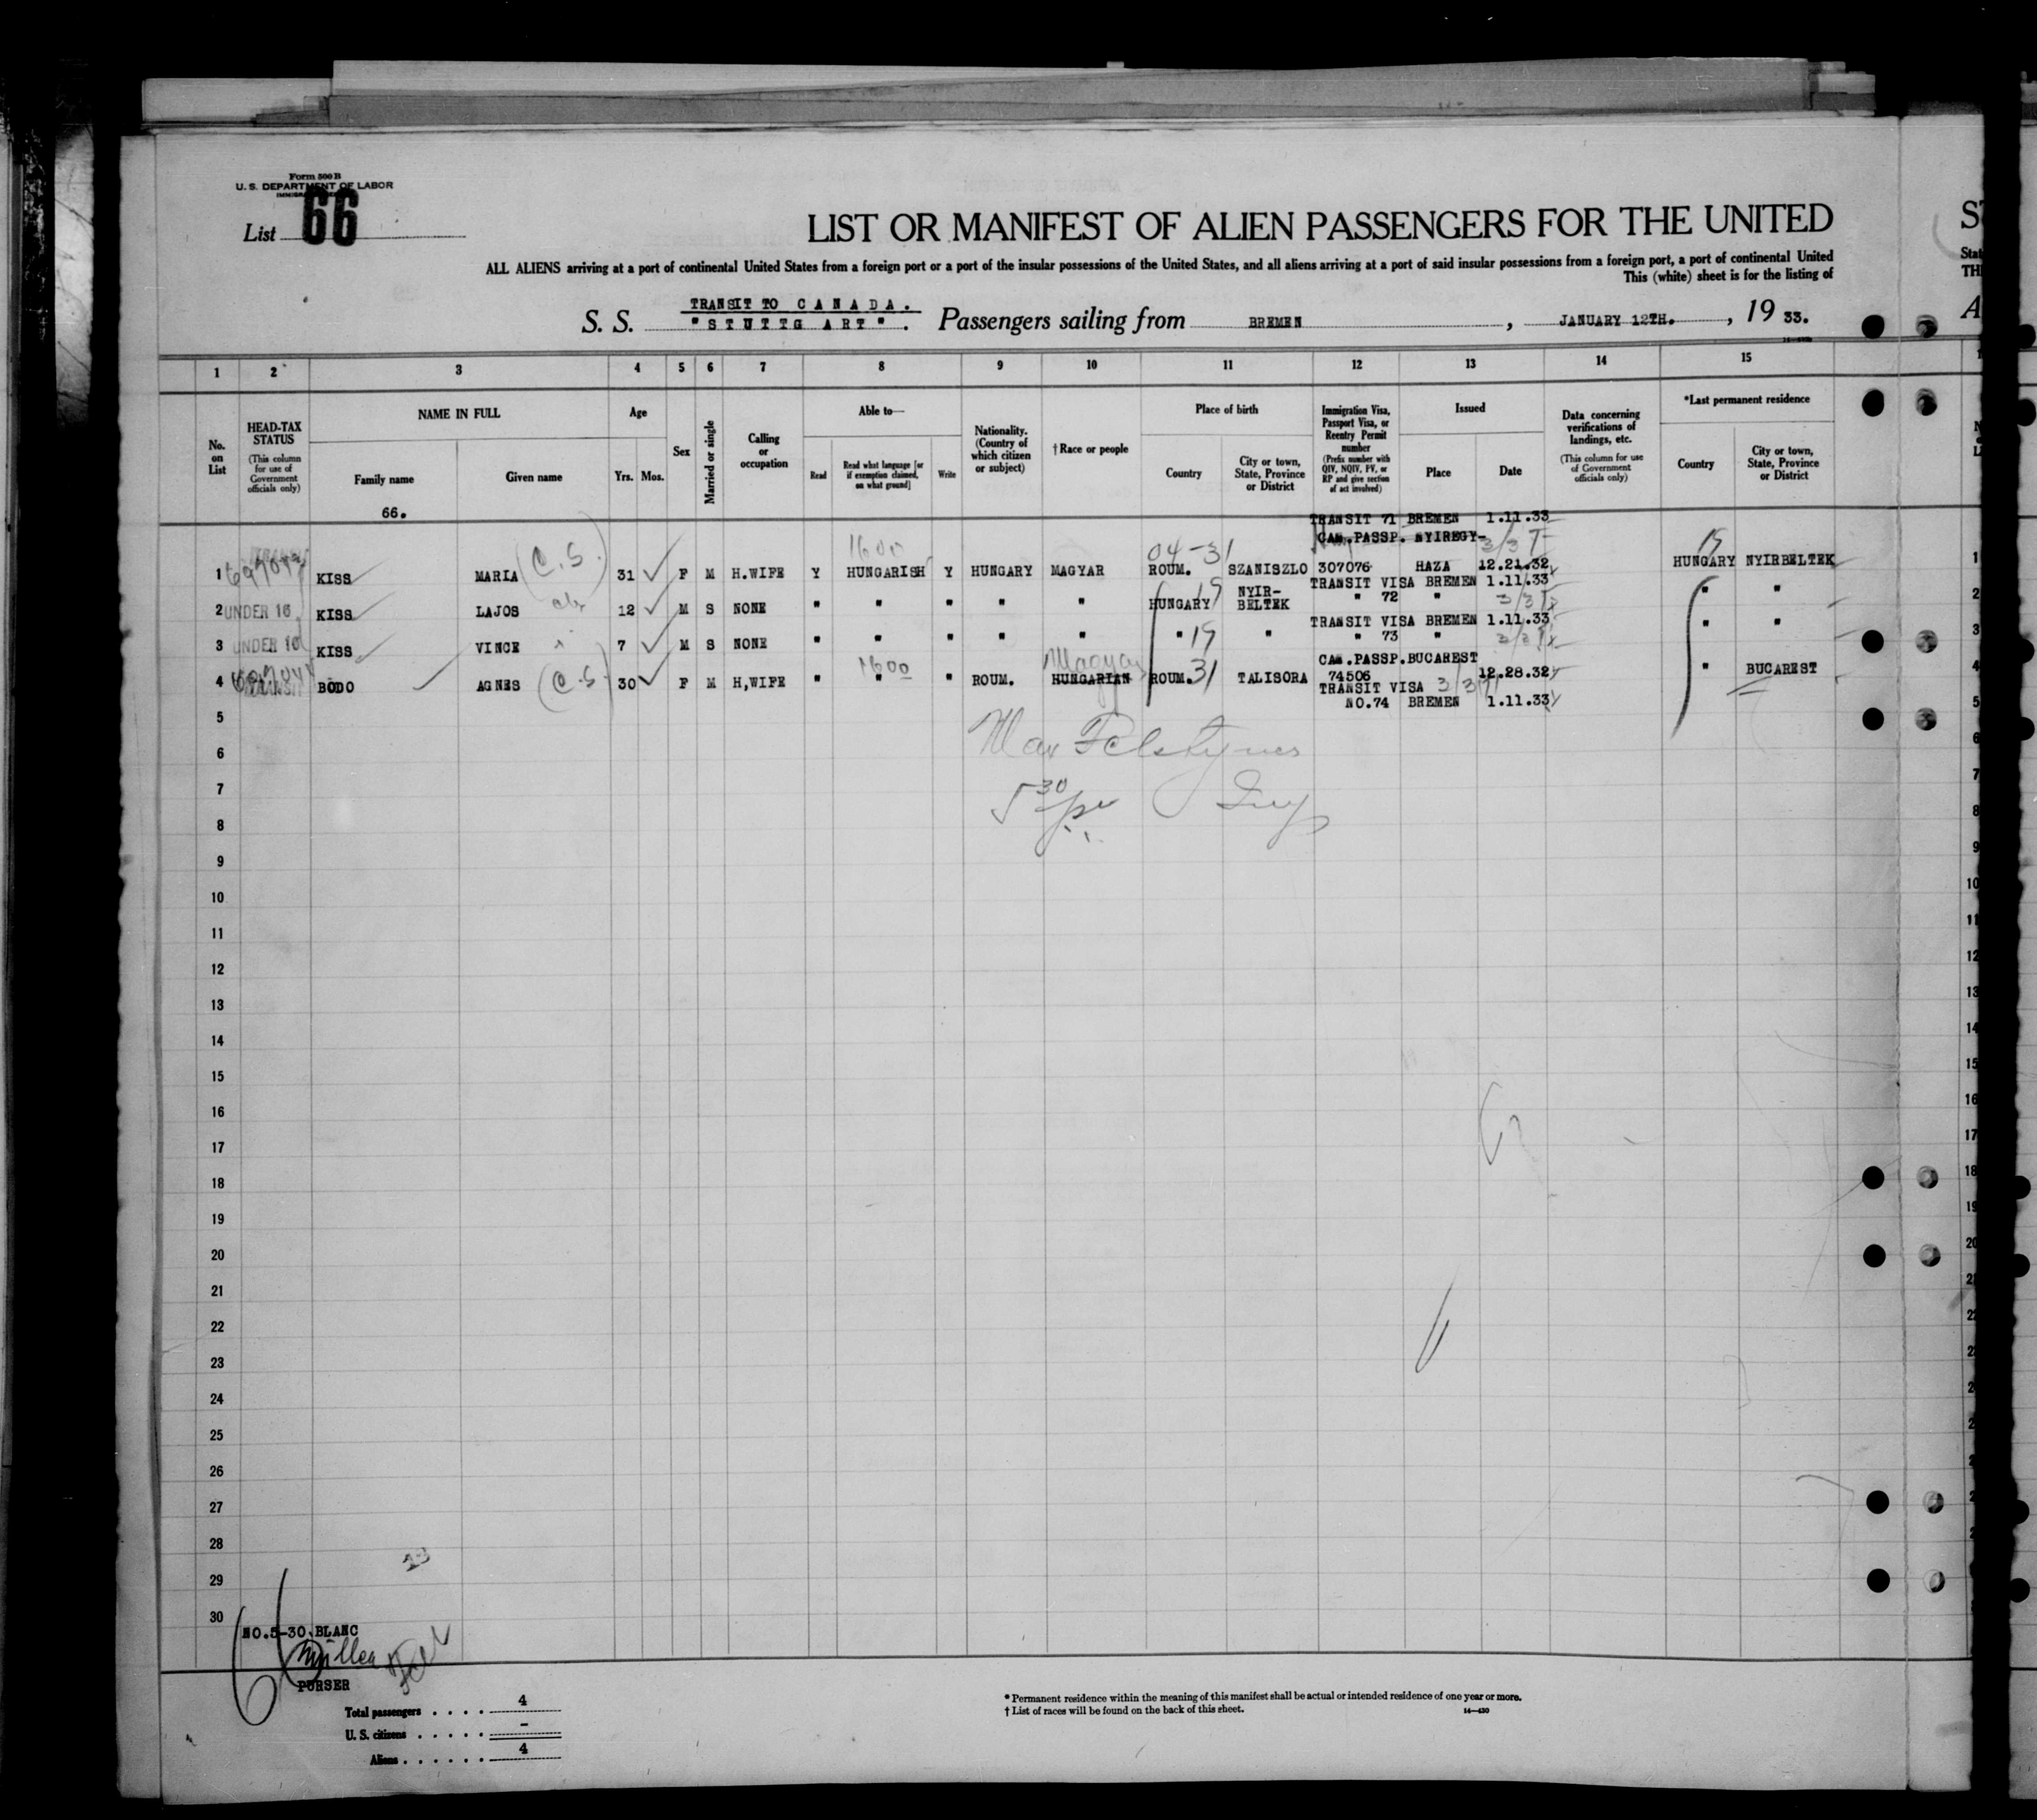 Form 500 B
U. S. DEPARTMENT OF LABOR
List 66
LIST OR MANIFEST OF ALIEN PASSENGERS FOR THE UNITED
ALL ALIENS arriving at a port of continental United States from a foreign port or a port of the insular possessions of the United States, and all aliens arriving at a port of said insular possessions from a foreign port, a port of continental United
This (white) sheet is for the listing of
TRANSIT TO CANADA.
S. S. "STUTTGART". Passengers sailing from BREMEN, JANUARY 12TH., 19 33.
1 2 3 4 5 6 7 8 9 10 11 12 13 14 15
No. on List
HEAD-TAX STATUS (This column for use of Government officials only)
NAME IN FULL
Family name Given name
Age
Yrs. Mos.
Sex
Married or single
Calling or occupation
Able to—
Read
Read what language [or if exemption claimed, on what ground]
Write
Nationality. (Country of which citizen or subject)
†Race or people
Place of birth
Country
City or town, State, Province or District
Immigration Visa, Passport Visa, or Reentry Permit number (Prefix number with QIV, NQIV, PV, or RP and give section of act involved)
Issued
Place Date
Data concerning verifications of landings, etc. (This column for use of Government officials only)
*Last permanent residence
Country
City or town, State, Province or District
66.
TRANSIT 71 BREMEN 1.11.33
CAN.PASSP. NYIREGY-
1600 04-31 3/3 T 15
1 KISS MARIA (C.S.) 31 F M H.WIFE Y HUNGARISH Y HUNGARY MAGYAR ROUM. SZANISZLO 307076 HAZA 12.21.32 HUNGARY NYIRBELTEK
TRANSIT VISA BREMEN 1.11.33
2 UNDER 16 KISS LAJOS 12 M S NONE " " " " " HUNGARY 15 NYIR-BELTEK " 72 " " "
TRANSIT VISA BREMEN 1.11.33
3 UNDER 16 KISS VINCE 7 M S NONE " " " " " " 15 " " 73 " " "
CAN.PASSP.BUCAREST
1600 Magyar
4 BODO AGNES (C.S.) 30 F M H,WIFE " " " ROUM. HUNGARIAN ROUM. 31 TALISORA 74506 12.28.32 " BUCAREST
TRANSIT VISA 3/3 T
NO.74 BREMEN 1.11.33
5
6
7
5 30
8
9
10
11
12
13
14
15
16
17
18
19
20
21
22
23
24
25
26
27
28
29
30
NO.5-30 BLANC
Müller
PURSER
Total passengers . . . . 4
U. S. citizens . . . . . -
Aliens . . . . . . 4
* Permanent residence within the meaning of this manifest shall be actual or intended residence of one year or more.
† List of races will be found on the back of this sheet.
14—430